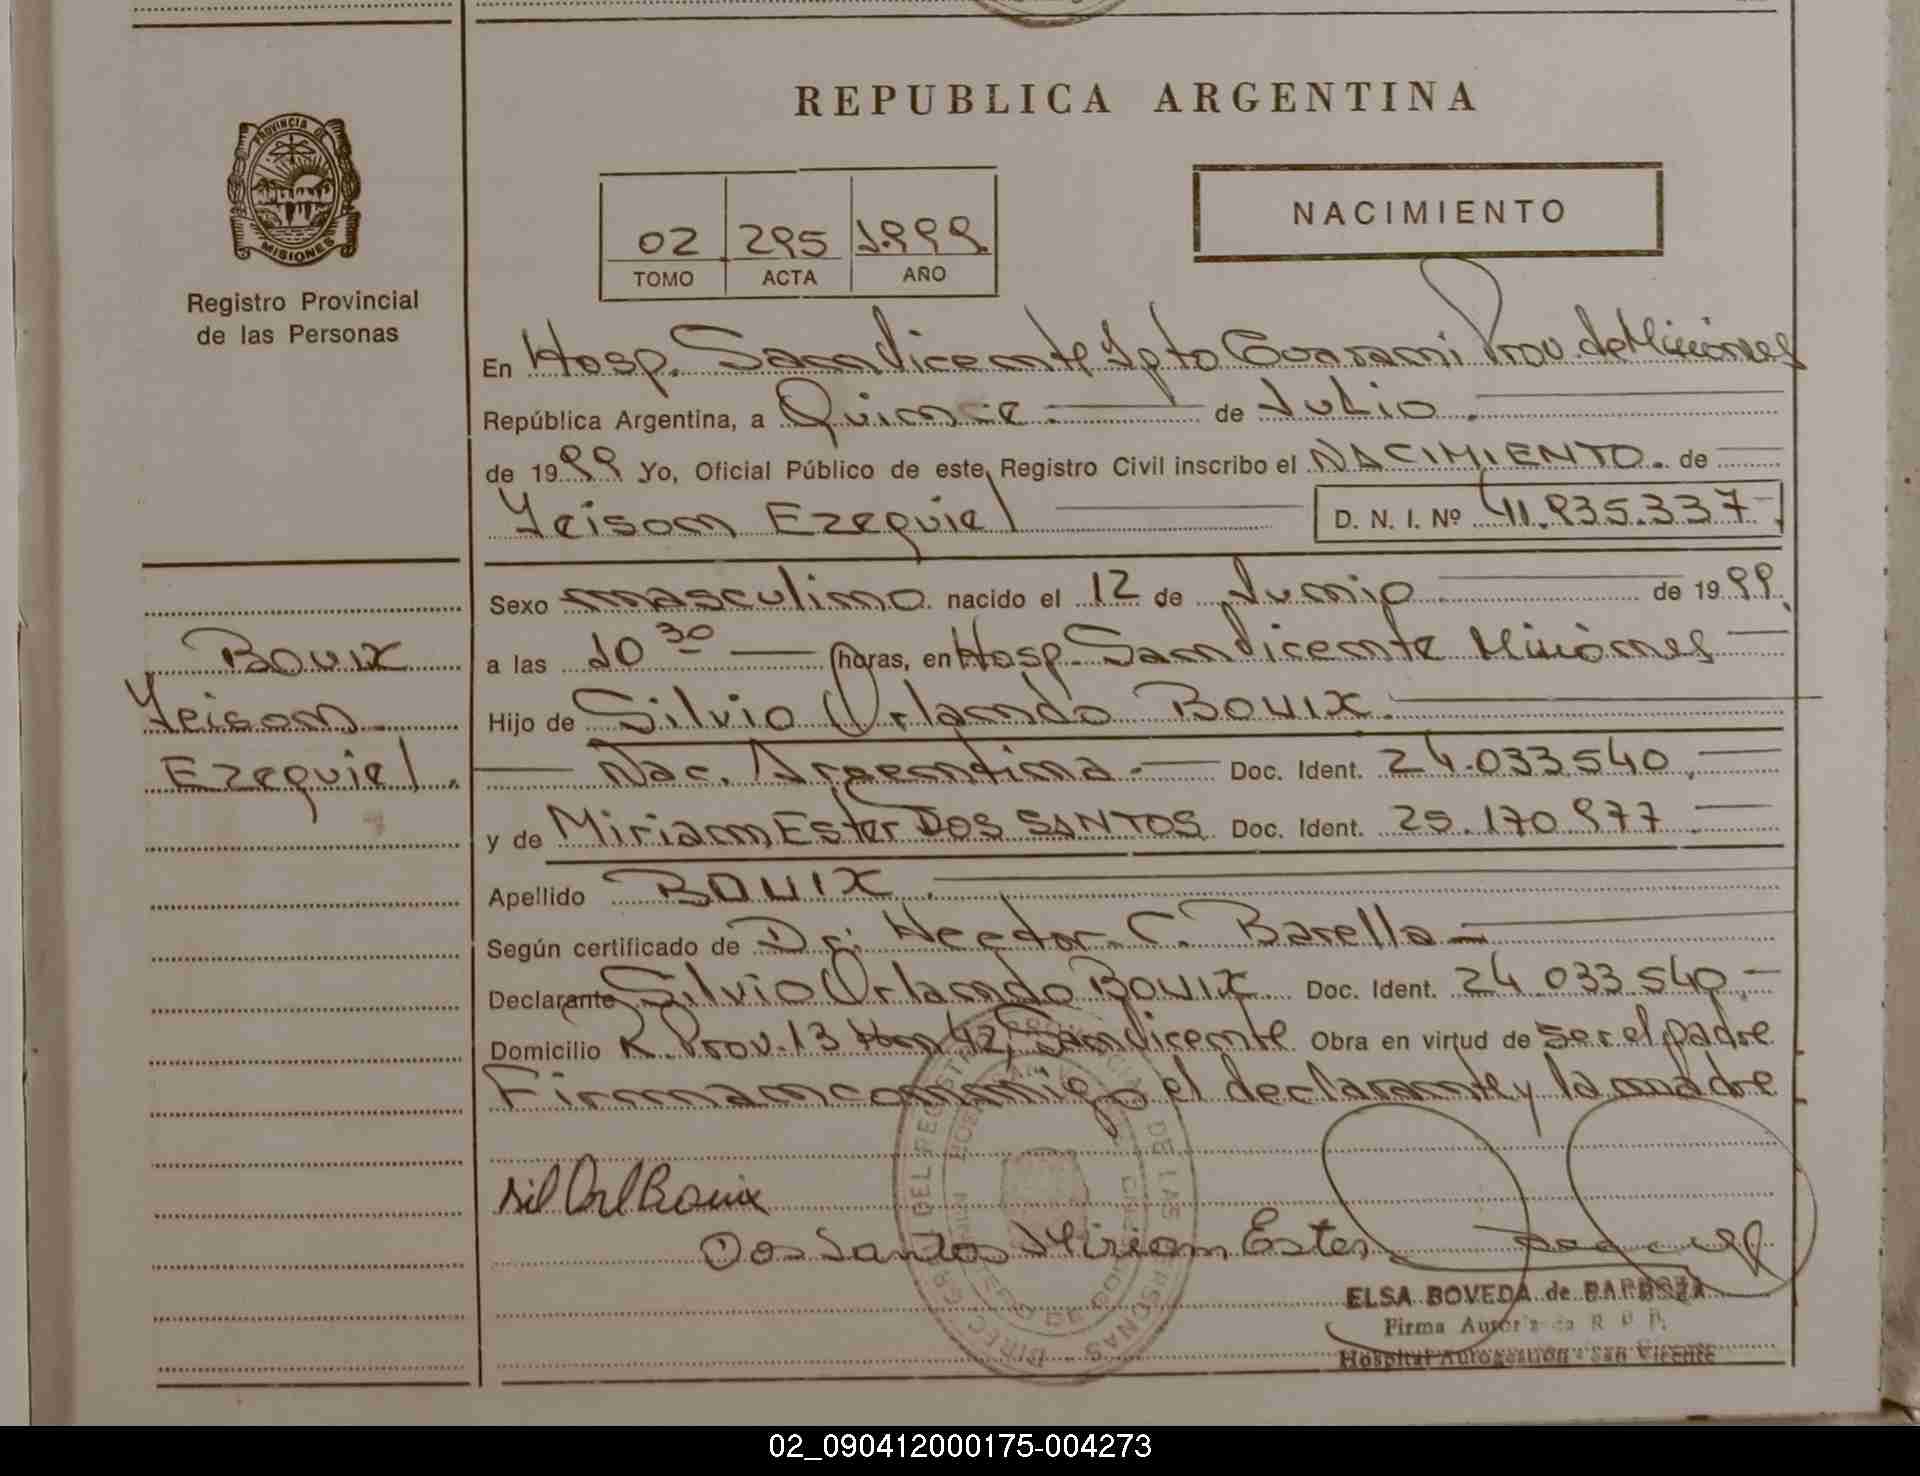 REPUBLICA ARGENTINA
PROVINCIA DE
MISIONES
Registro Provincial
de las Personas
02 295 1.999.
TOMO ACTA AÑO
NACIMIENTO
En Hosp. San Vicente Dpto Guarani Prov. de Misiones
República Argentina, a Quince de Julio.
de 1999 Yo, Oficial Público de este Registro Civil inscribo el NACIMIENTO. de
Yeison Ezequiel D. N. I. Nº 41.935.337.
Sexo masculino nacido el 12 de Junio de 1999.
a las 10 30 horas, en Hosp. San Vicente Misiones
Hijo de Silvio Orlando BOUIX.
Nac. Argentina. Doc. Ident. 24.033.540.
y de Miriam Ester DOS SANTOS Doc. Ident. 25.170.977.
Apellido BOUIX.
Según certificado de Dr. Hector C. Barella
Declarante Silvio Orlando BOUIX Doc. Ident. 24.033.540.
Domicilio R. Prov. 13 Km 42, San Vicente Obra en virtud de ser el padre
Firman conmigo el declarante y la madre
BOUIX
Yeison
Ezequiel.
Sil Orl Bouix
Dos Santos Miriam Ester
ELSA BOVEDA de BARBOZA
Firma Autoriza R P P.
Hospital Autogestion - San Vicente
02_090412000175-004273